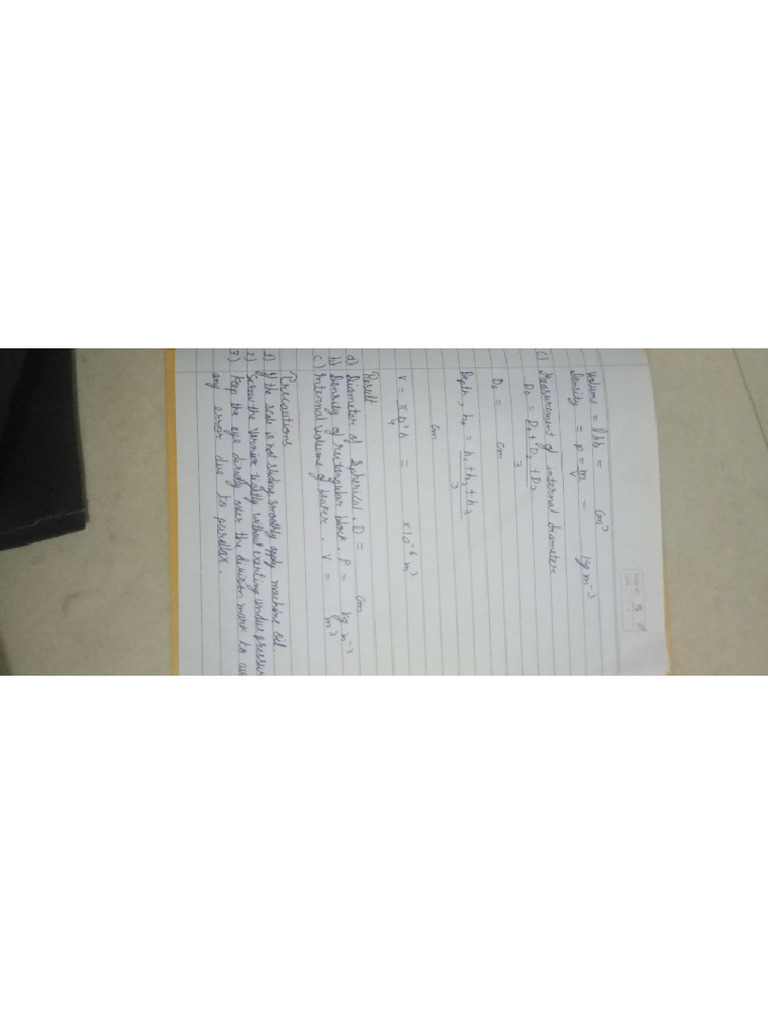 Volume = lbh = cm³
Density = ρ = m/V = kg m⁻³
c) Measurement of internal diameter
D₀ = D₁ + D₂ + D₃ / 3
D₀ = cm
Depth, h₀ = h₁ + h₂ + h₃ / 3
cm
V = πD²h / 4 = x 10⁻⁶ m³
Result
a) Diameter of Spherical, D = cm
b) Density of rectangular block, P = kg m⁻³
c) Internal volume of beaker, V = m³
Precautions
1) If the scale is not sliding smoothly apply machine oil.
2) Screw the vernier tightly without exerting undue pressure
3) Keep the eye directly over the division mark to
any error due to parallax.